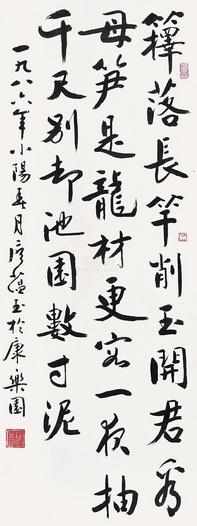 籜落長竿削玉開君看
母笋是龍材更容一夜抽
千尺別却池園數寸泥
一九八六年小陽春月蘊玉於康樂園